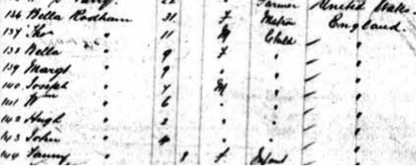 22 Farmer United States
136 Bella Rodham 31 F Matron England
137 Tho " 11 M Child "
138 Bella " 9 F " "
139 Margt " 9 " " "
140 Joseph " 7 M " "
141 Wm " 6 " " "
142 Hugh " 2 " " "
143 John " 4 " " "
144 Fanny " 1 F Infant "